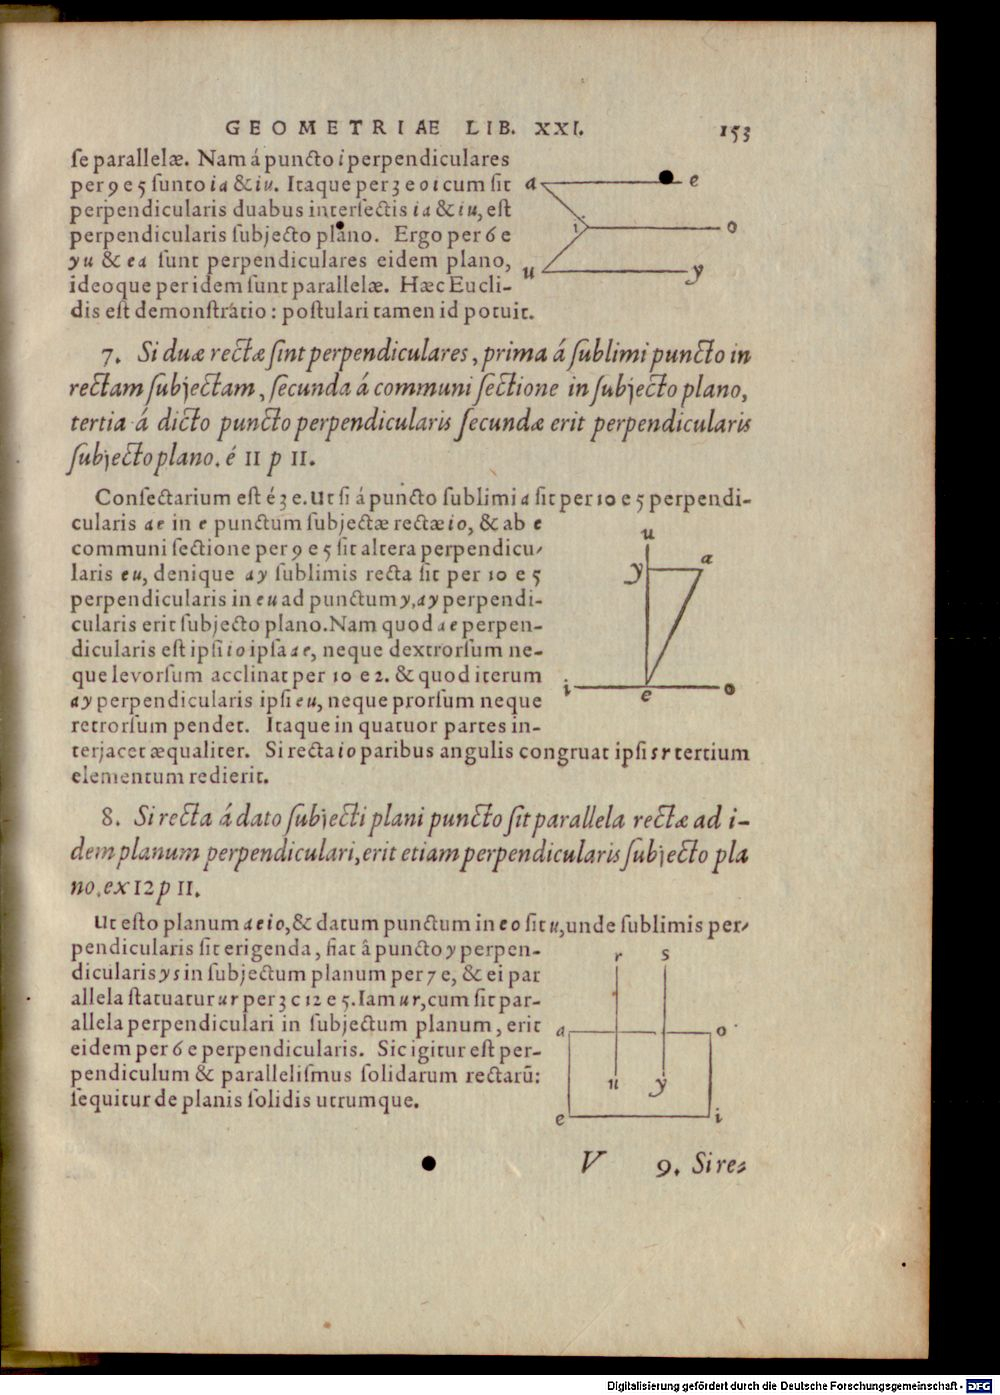 GEOMETRIÆ LIB. XXI. 153
ſe parallelæ. Nam á puncto i perpendiculares
per 9 e 5 ſunto ia & iu. Itaque per 3 e o i cum ſit
perpendicularis duabus interſectis ia & iu, eſt
perpendicularis ſubjecto plano. Ergo per 6 e
yu & ea ſunt perpendiculares eidem plano,
ideoque per idem ſunt parallelæ. Hæc Eucli-
dis eſt demonſtratio: poſtulari tamen id potuit.
a e
i o
u y
7. Si duæ rectæ ſint perpendiculares, prima á ſublimi puncto in
rectam ſubjectam, ſecunda á communi ſectione in ſubjecto plano,
tertia á dicto puncto perpendicularis ſecundæ erit perpendicularis
ſubjecto plano. é 11 p 11.
Conſectarium eſt é 3 e. Ut ſi á puncto ſublimi a ſit per 10 e 5 perpendi-
cularis ae in e punctum ſubjectæ rectæ io, & ab e
communi ſectione per 9 e 5 ſit altera perpendicu-
laris eu, denique ay ſublimis recta ſit per 10 e 5
perpendicularis in eu ad punctum y, ay perpendi-
cularis erit ſubjecto plano. Nam quod ae perpen-
dicularis eſt ipſi io ipſa ae, neque dextrorſum ne-
que levorſum acclinat per 10 e 2. & quod iterum
ay perpendicularis ipſi eu, neque prorſum neque
retrorſum pendet. Itaque in quatuor partes in-
terjacet æqualiter. Si recta io paribus angulis congruat ipſi sr tertium
elementum redierit.
u
y a
i e o
8. Si recta á dato ſubjecti plani puncto ſit parallela rectæ ad i-
dem planum perpendiculari, erit etiam perpendicularis ſubjecto pla
no. ex 12 p 11.
Ut eſto planum aeio, & datum punctum in eo ſit u, unde ſublimis per-
pendicularis ſit erigenda, fiat â puncto y perpen-
dicularis ys in ſubjectum planum per 7 e, & ei par
allela ſtatuatur ur per 3 c 12 e 5. Iam ur, cum ſit par-
allela perpendiculari in ſubjectum planum, erit
eidem per 6 e perpendicularis. Sic igitur eſt per-
pendiculum & paralleliſmus ſolidarum rectarū:
ſequitur de planis ſolidis utrumque.
r s
a o
u y
e i
V 9. Si re-
Digitalisierung gefördert durch die Deutsche Forschungsgemeinschaft - DFG